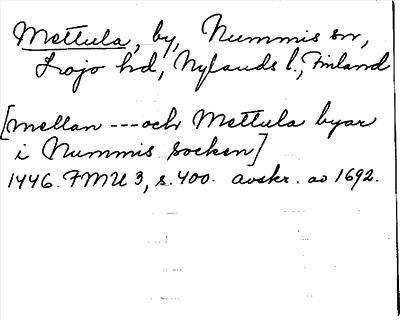 Mettula, by, Nummis sn,
Lojo hd, Nylands l., Finland
[mellan --- och Mettula byar
i Nummis socken]
1446. FMU 3, s. 400. avskr. av 1692.